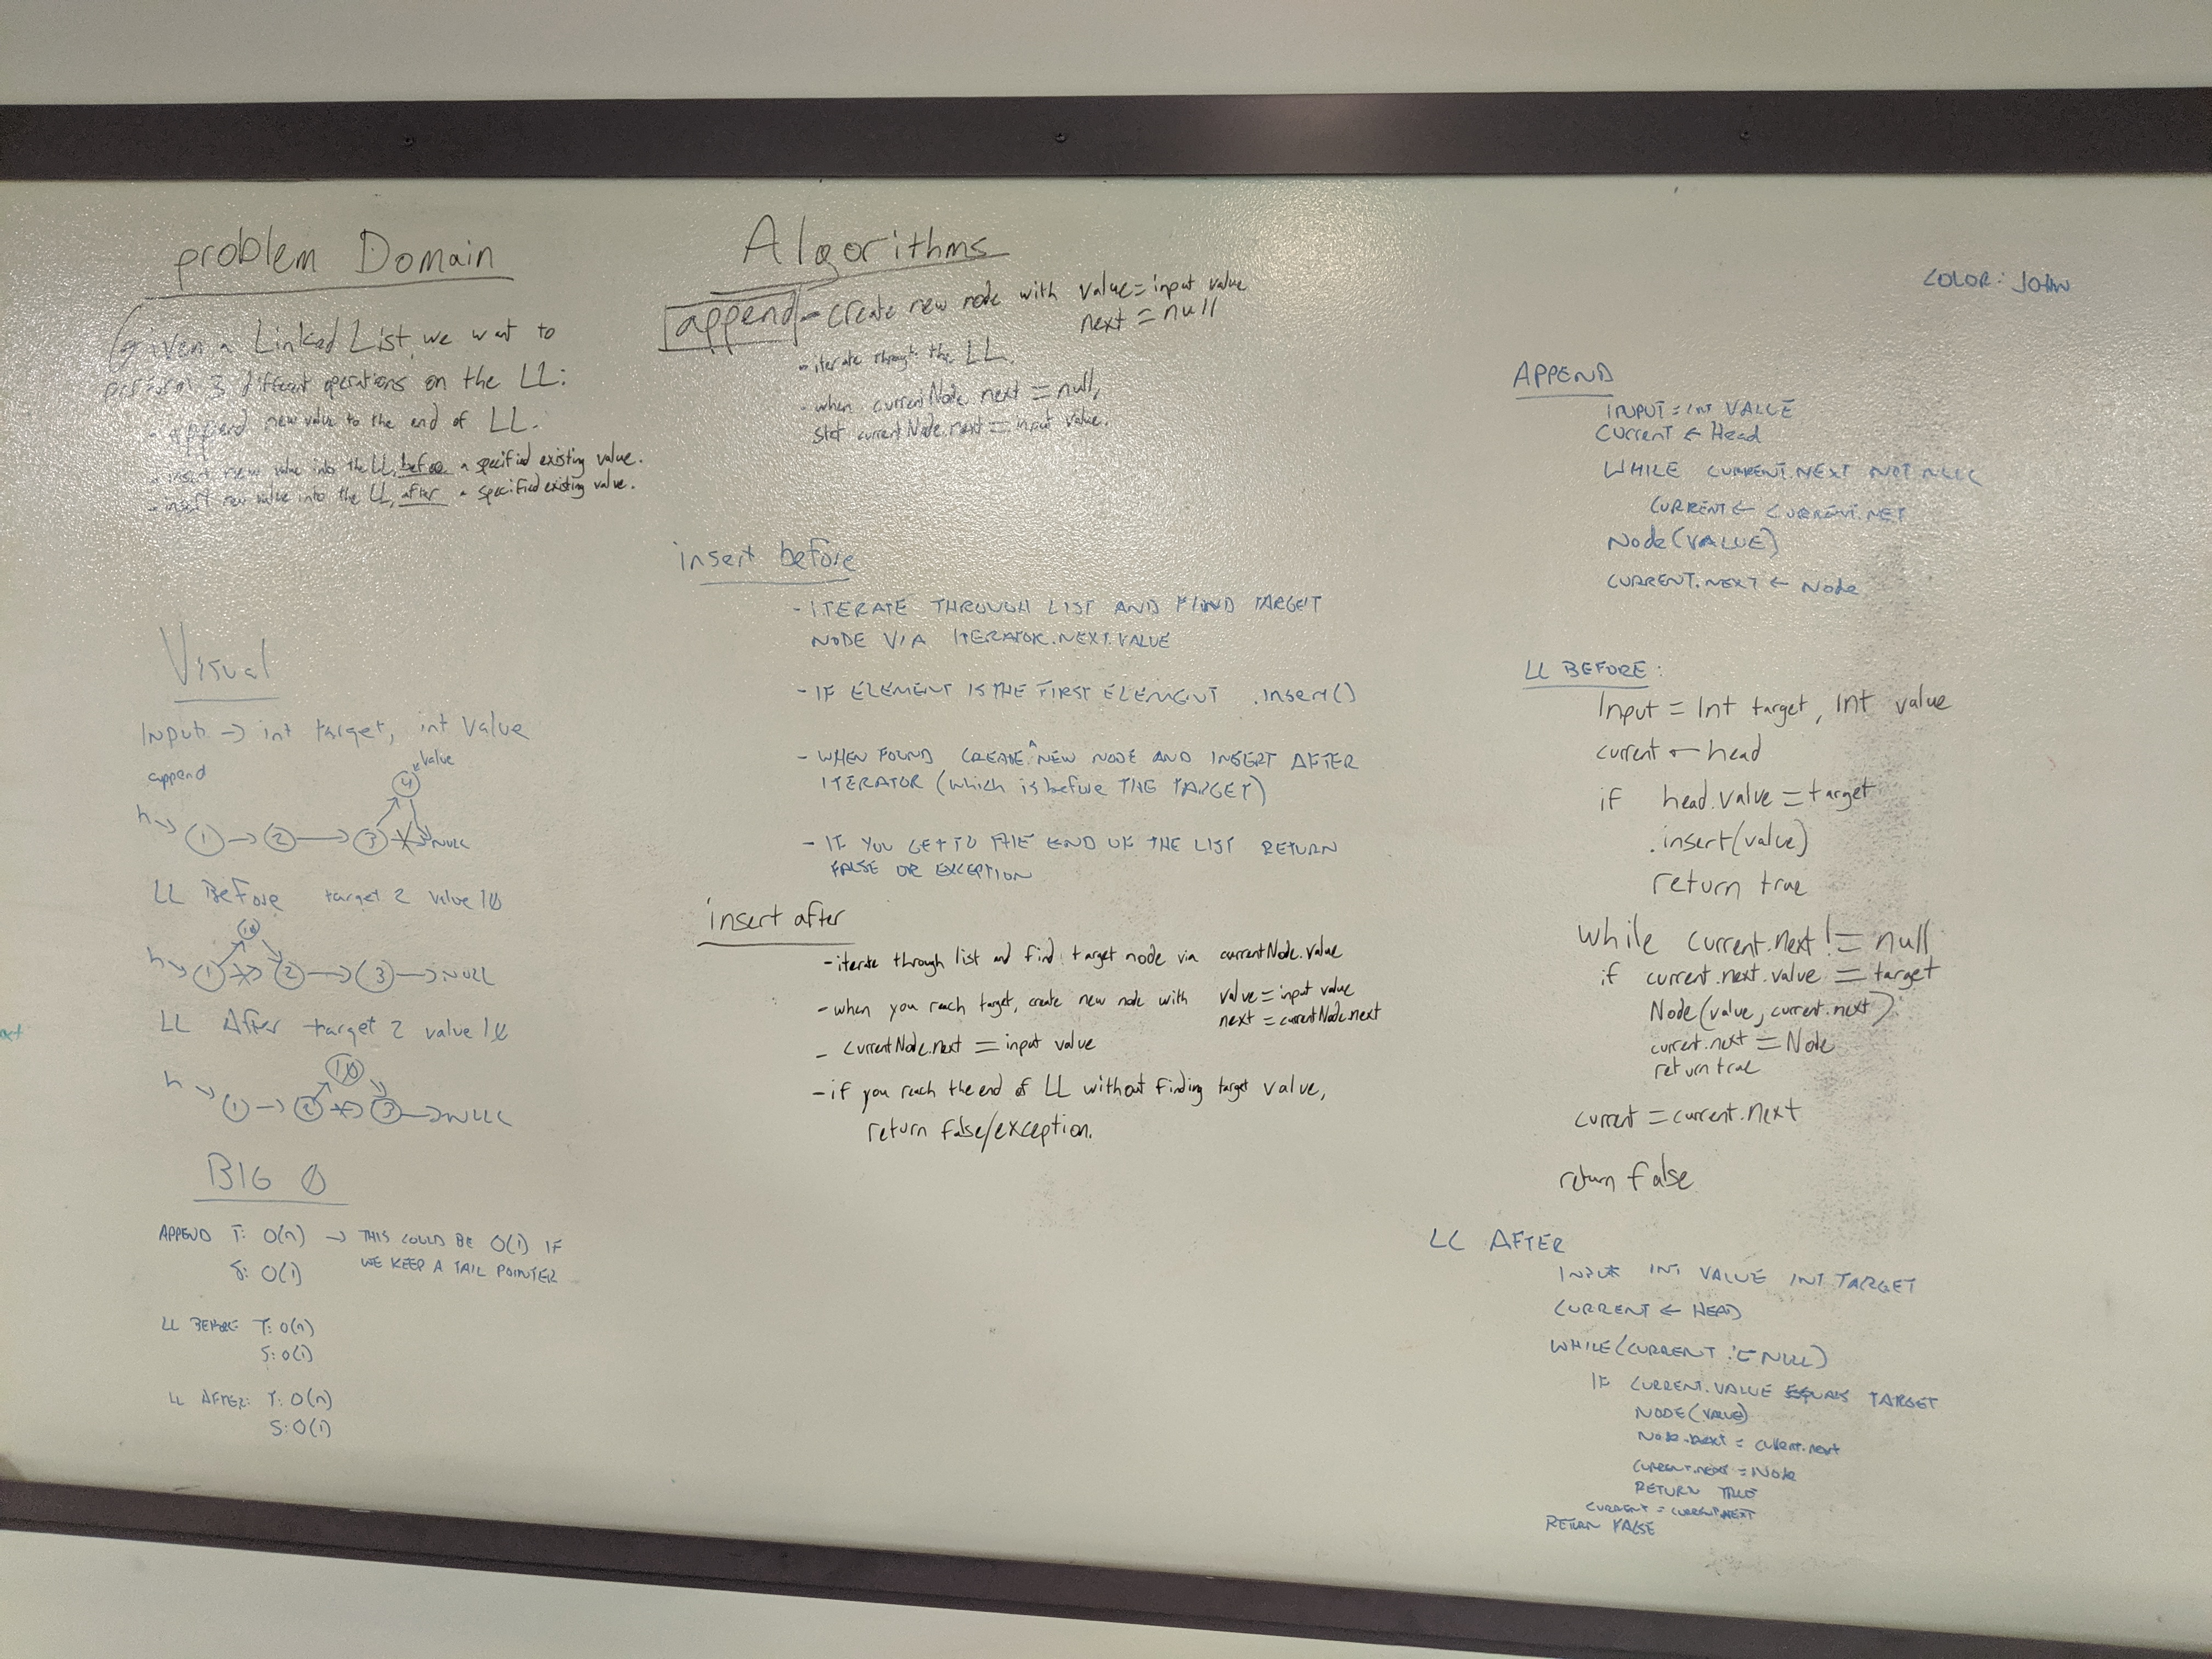 problem Domain
Given a Linked List, we want to
perform 3 different operations on the LL:
- append new value to the end of LL.
- insert new value into the LL, before a specified existing value.
- insert new value into the LL, after a specified existing value.
Visual
Input -> int target, int Value
append
value
4
h 1 2 3 NULL
LL Before target 2 value 10
10
h 1 2 3 NULL
LL After target 2 value 10
10
h 1 2 3 NULL
BIG O
APPEND T: O(n) -> THIS COULD BE O(1) IF
S: O(1) WE KEEP A TAIL POINTER
LL BEFORE T: O(n)
S: O(1)
LL AFTER: T: O(n)
S: O(1)
Algorithms
append - create new node with value = input value
next = null
- iterate through the LL.
- when currentNode.next = null,
set currentNode.next = input value.
insert before
- ITERATE THROUGH LIST AND FIND TARGET
NODE VIA ITERATOR.NEXT.VALUE
- IF ELEMENT IS THE FIRST ELEMENT .insert()
- WHEN FOUND CREATE A NEW NODE AND INSERT AFTER
ITERATOR (which is before THE TARGET)
- IF YOU GET TO THE END OF THE LIST RETURN
FALSE OR EXCEPTION
insert after
- iterate through list and find target node via currentNode.value
- when you reach target, create new node with value = input value
next = currentNode.next
- currentNode.next = input value
- if you reach the end of LL without finding target value,
return false/exception.
COLOR: JOHN
APPEND
INPUT = int VALUE
Current <- Head
WHILE CURRENT.NEXT NOT NULL
CURRENT <- CURRENT.NET
Node(VALUE)
CURRENT.NEXT <- Node
LL BEFORE:
Input = Int target, Int value
current <- head
if head.value = target
.insert(value)
return true
while current.next != null
if current.next.value = target
Node(value, current.next)
current.next = Node
return true
current = current.next
return false
LL AFTER
INPUT INT VALUE INT TARGET
CURRENT <- HEAD
WHILE(CURRENT != NULL)
IF CURRENT.VALUE EQUALS TARGET
NODE(VALUE)
Node.next = current.next
CURRENT.next = Node
RETURN TRUE
CURRENT = CURRENT.NEXT
RETURN FALSE